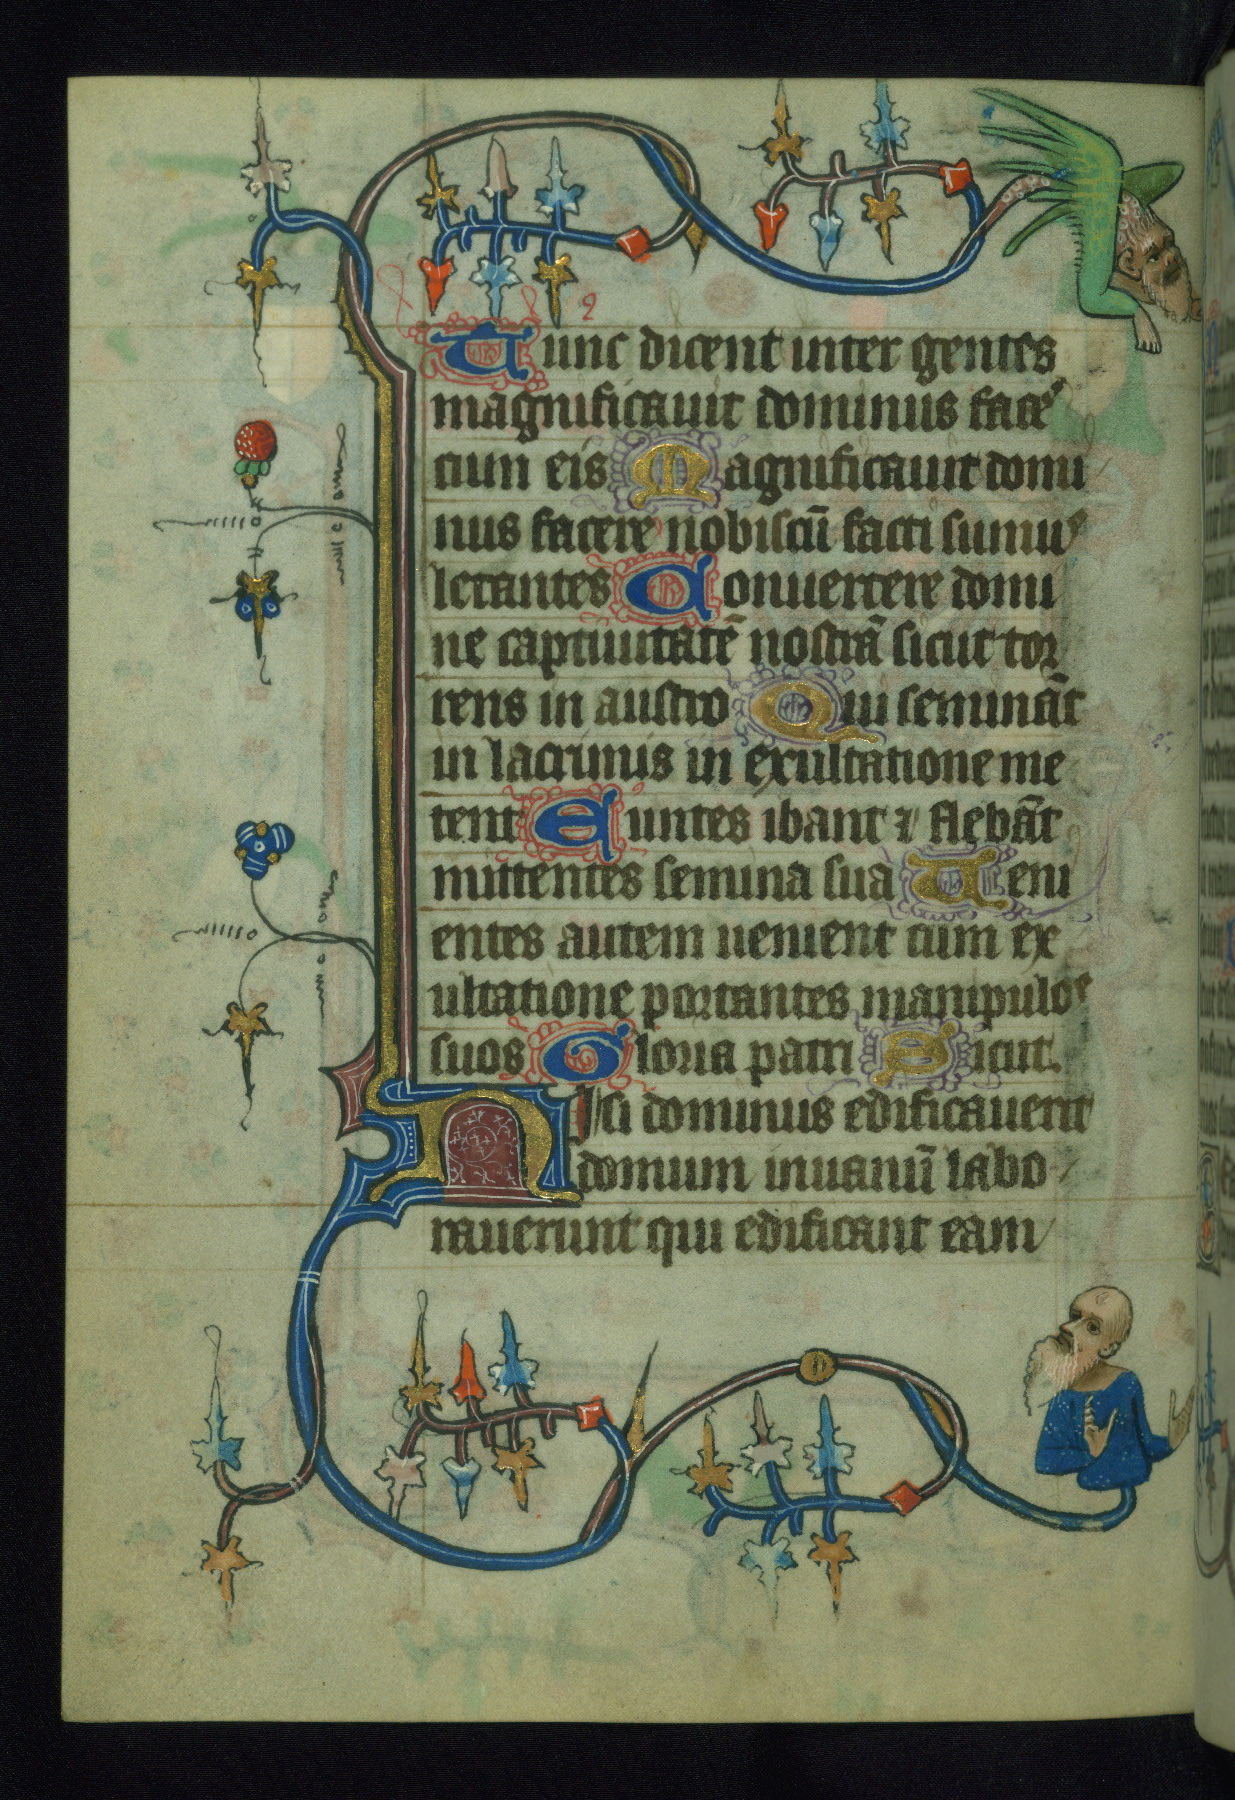 Tunc dicent inter gentes
magnificauit dominus face
cum eis Magnificauit domi
nus facere nobiscū facti sumus
letantes Conuertere domi
ne captiuitatē nostrā sicut tor
rens in austro Qui semināt
in lacrimis in exultatione me
tent Euntes ibant ⁊ flebāt
mittentes semina sua Ueni
entes autem uenient cum ex
ultatione portantes manipulos
suos Gloria patri Sicut.
Nisi dominus edificauerit
domum inuanū labo
rauerunt qui edificant eam